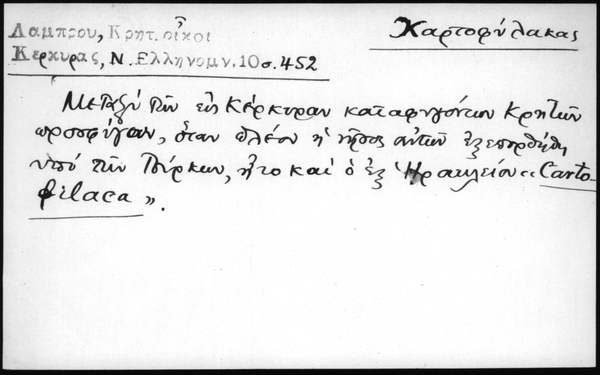 Χαρτοφύλακας
Λαμπρου, Κρητ. οἶκοι
Κερκυρας, Ν. Ελληνομν. 10 σ. 452
Μεταξύ τῶν εἰς Κέρκυραν καταφυγόντων Κρητῶν
προσφύγων, ὅταν πλέον ἡ νῆσος αὐτῶν ἐξεπορθήθη
ὑπό τῶν Τούρκων, ἦτο καί ὁ ἐξ Ἡρακλείου «Carto-
filaca».